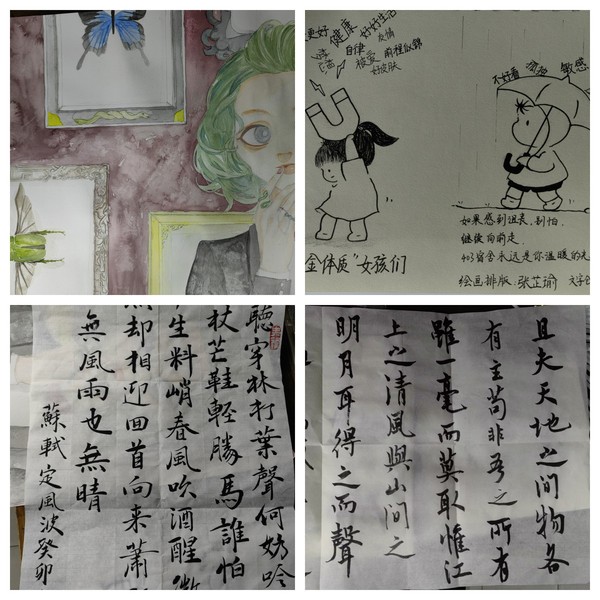 更好
健康
好好生活
友情
自律
被爱
前程似锦
好皮肤
不好看
敏感
如果感到沮丧,别怕,
继续向前走,
403宿舍永远是你温暖的
金体质"女孩们
绘画排版:张芷瑜
聽穿林打葉聲何妨吟
杖芒鞋輕勝馬誰怕
生料峭春風吹酒醒微
却相迎回首向来蕭
無風雨也無晴
蘇軾定風波癸卯
且夫天地之间物各
有主苟非吾之所有
雖一毫而莫取惟江
上之清風與山间之
明月耳得之而聲